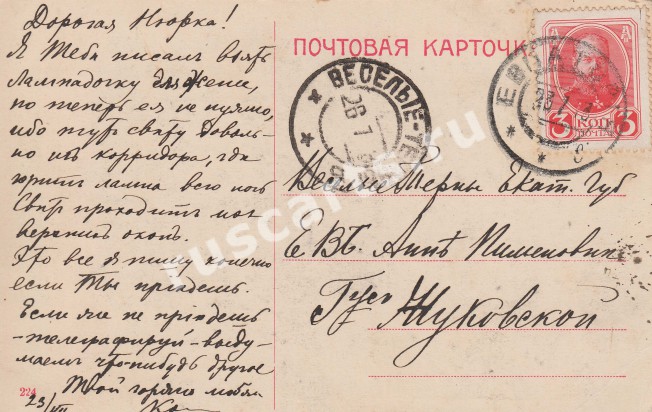 Дорогая Нюрка!
Я Тебѣ писалъ взять
Лампадочку для Жени,
но теперь ея не нужно,
ибо тутъ свѣту доволь-
но изъ корридора, гдѣ
горитъ лампа всю ночь
Свѣтъ проходитъ изъ
окопъ.
Это все я пишу конечно
если Ты пріѣдешь.
Если же не пріѣдешь
-телеграфируй- выду-
маемъ что-нибудь другое
Твой горячо любящ
23/VII
224
ПОЧТОВАЯ КАРТОЧК
ВЕСЕЛЫЕ-ТЕ
26 7
ЕВПАТ
23 7
3 КОП 3
ПОЧТА
Веселые Терны Екат. Губ
Е ВБ. Аннѣ Пименовнѣ
Гусь
Жуковской
ruscarts.ru